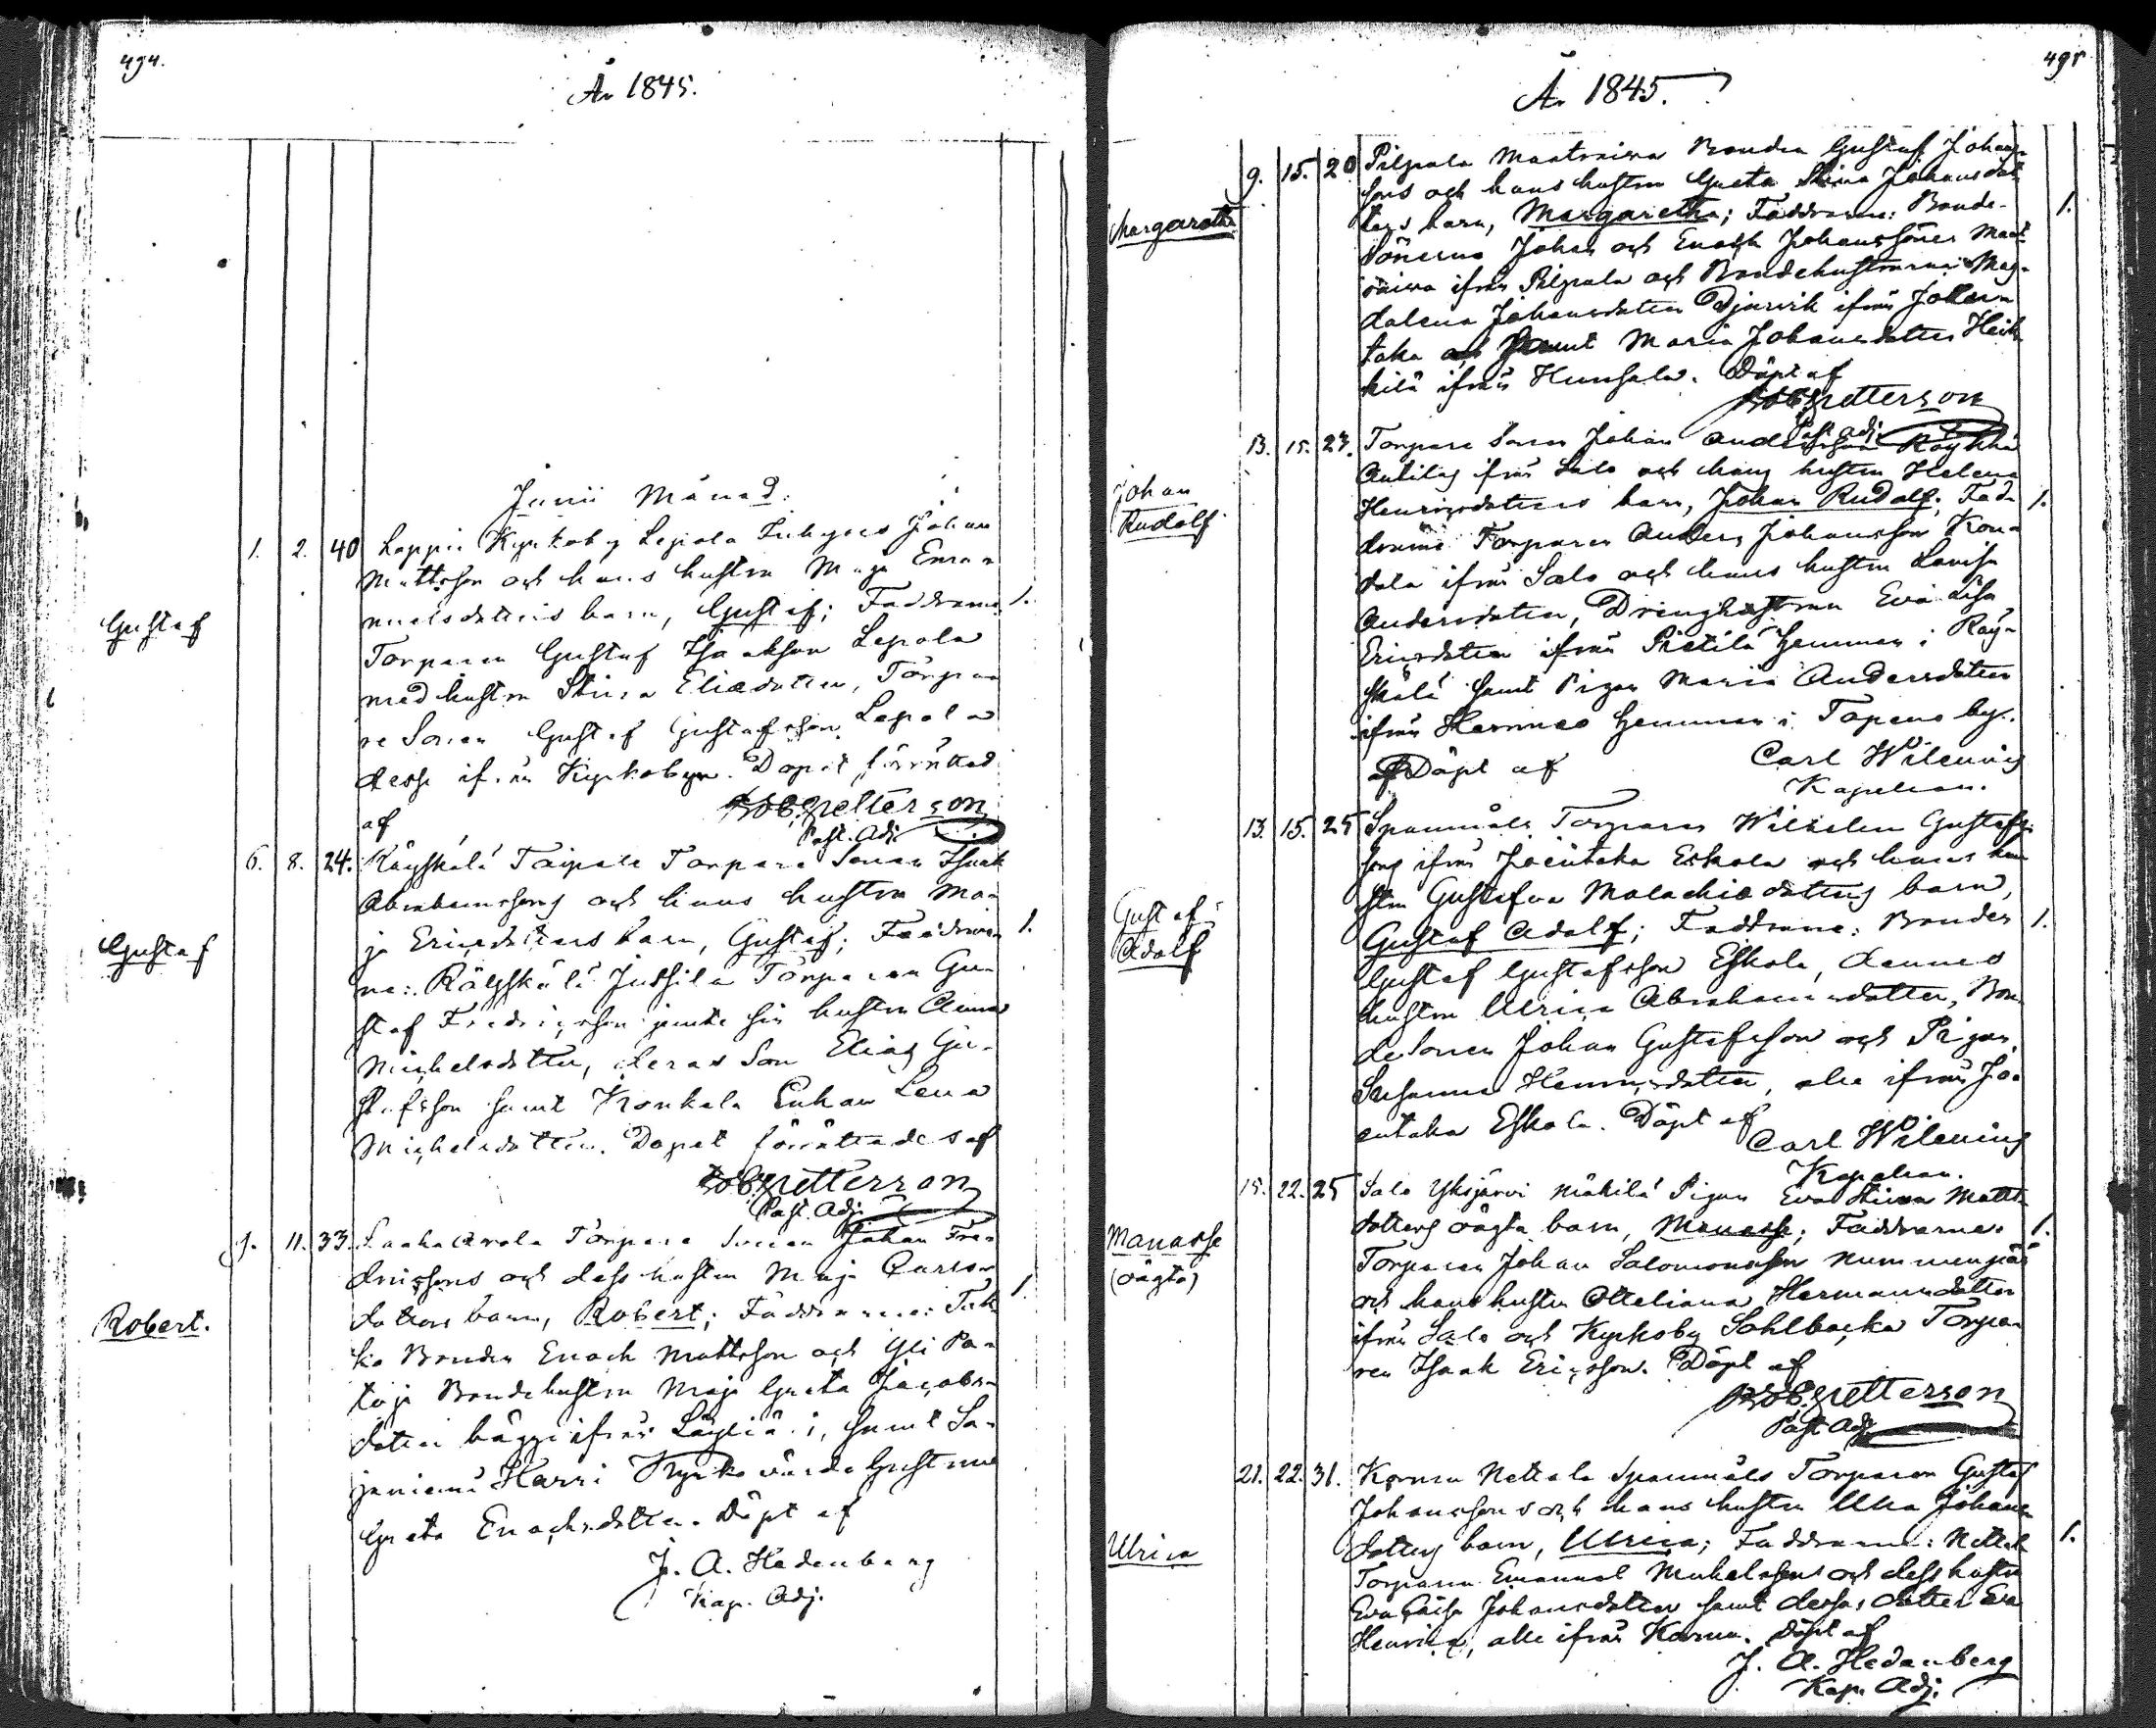 494.
År 1845.
Junii Månad.
1. 2. 40 Loppis Kyrkoby Lepola Johan
Mattsson och hans hustru Maja Ema-
nuelsdotters barn, Gustaf; Faddrarne 1.
Gustaf
Torparen Gustaf Isaaksson Lepola
med hustru Stina Eliædotter, Torpa-
re Sonen Gustaf Gustafsson Lepola
desse ifrån Kyrkobyn. Dopet förrättad
af Rob. Petterson
Past. Adj.
6. 8. 24. Räyskälä Taipale Torpare Sonen Isaak
Abrahamssons och hans hustru Ma-
ja Ericsdotters barn, Gustaf; Faddrar- 1.
Gustaf
ne: Räyskälä Jussila Torparen Gu-
staf Fredricsson jemte sin hustru Anna
Michelsdotter, deras Son Elias Gu-
stafsson samt Konkala Enkan Lena
Michelsdotter. Dopet förrättades af
Rob. Petterson
Past. Adj.
9. 11. 33. Arola Torpare Sonen Johan Fre-
dricssons och dess hustru Maja
dotters barn, Robert; Faddrarne: 1.
Robert.
Bonden Enoch Mattsson och Yli Pa-
tojo Bondehustru Maja Greta Jacobs-
dotter bägge ifrån Läyliä i, samt Sa-
janiemi Harri Kyrkovärds hustru
Greta Enochsdotter. Döpt af
J. A. Hedenberg
Kap. Adj.
495
År 1845.
9. 15. 20 Pilpala Maatoniva Bonden Gustaf Johans-
sons och hans hustru Greta Stina Johansdot-
ters barn, Margaretha; Faddrarne: Bonde- 1.
Margaretha
Sönerna Johan och Enoch Johanssöner Maat-
oniva ifrån Pilpala och Bondehustrurna Mag-
dalena Johansdotter Djurvik ifrån
taka samt Maria Johansdotter Heik-
kilä ifrån Hunsala. Döpt af
Rob. Petterson
Past. Adj.
13. 15. 23. Torpare Sonen Johan Andersson Köykkä
Anttilas ifrån Salo och hans hustru Helena
Henricsdotters barn, Johan Rudolf; Fad- 1.
Johan
Rudolf
drarne Torparen Anders Johansson Kon-
dola ifrån Salo och hans hustru Lovisa
Andersdotter, Drenghustrun Eva Lisa
Ericsdotter ifrån Pietilä hemman i Räy-
skälä samt Pigan Maria Andersdotter
ifrån Hemman i Topeno by.
Döpt af Carl Wilenius
Kapellan.
13. 15. 25 Spannmåls Torparen Wilhelm Gustafs-
sons ifrån Joentaka Eskola och hans hu-
stru Gustafva Malachiædotters barn,
Gustaf Adolf; Faddrarne: Bonden 1.
Gustaf
Adolf
Gustaf Gustafsson Eskola, dennes
hustru Ulrica Abrahamsdotter, Bon-
de Sonen Johan Gustafsson och Pigan
Susanna Henricsdotter, alla ifrån Jo-
entaka Eskola. Döpt af
Carl Wilenius
Kapellan.
15. 22. 25 Salo Yksjärvi Mäkilä Pigan Eva Stina Matts-
dotters oägta barn, Manasse; Faddrarne 1.
Manasse
(oägta)
Torparen Johan Salomonsson Nummenpää
och hans hustru Otteliana Hermansdotter
ifrån Salo och Kyrkoby Sahlbacka Torpa-
ren Isaak Ericsson. Döpt af
Rob. Petterson
Past. Adj.
21. 22. 31. Kormu Nettala Spanmåls Torparen Gustaf
Johanssons och hans hustru Ulla Johans-
dotters barn, Ulrica; Faddrarne: Nettala 1.
Ulrica
Torparen Emanuel Michelsson och dess hustru
Eva Caisa Johansdotter samt dessas dotter Eva
Henrica, alle ifrån Kormu. Döpt af
J. A. Hedenberg
Kap. Adj.